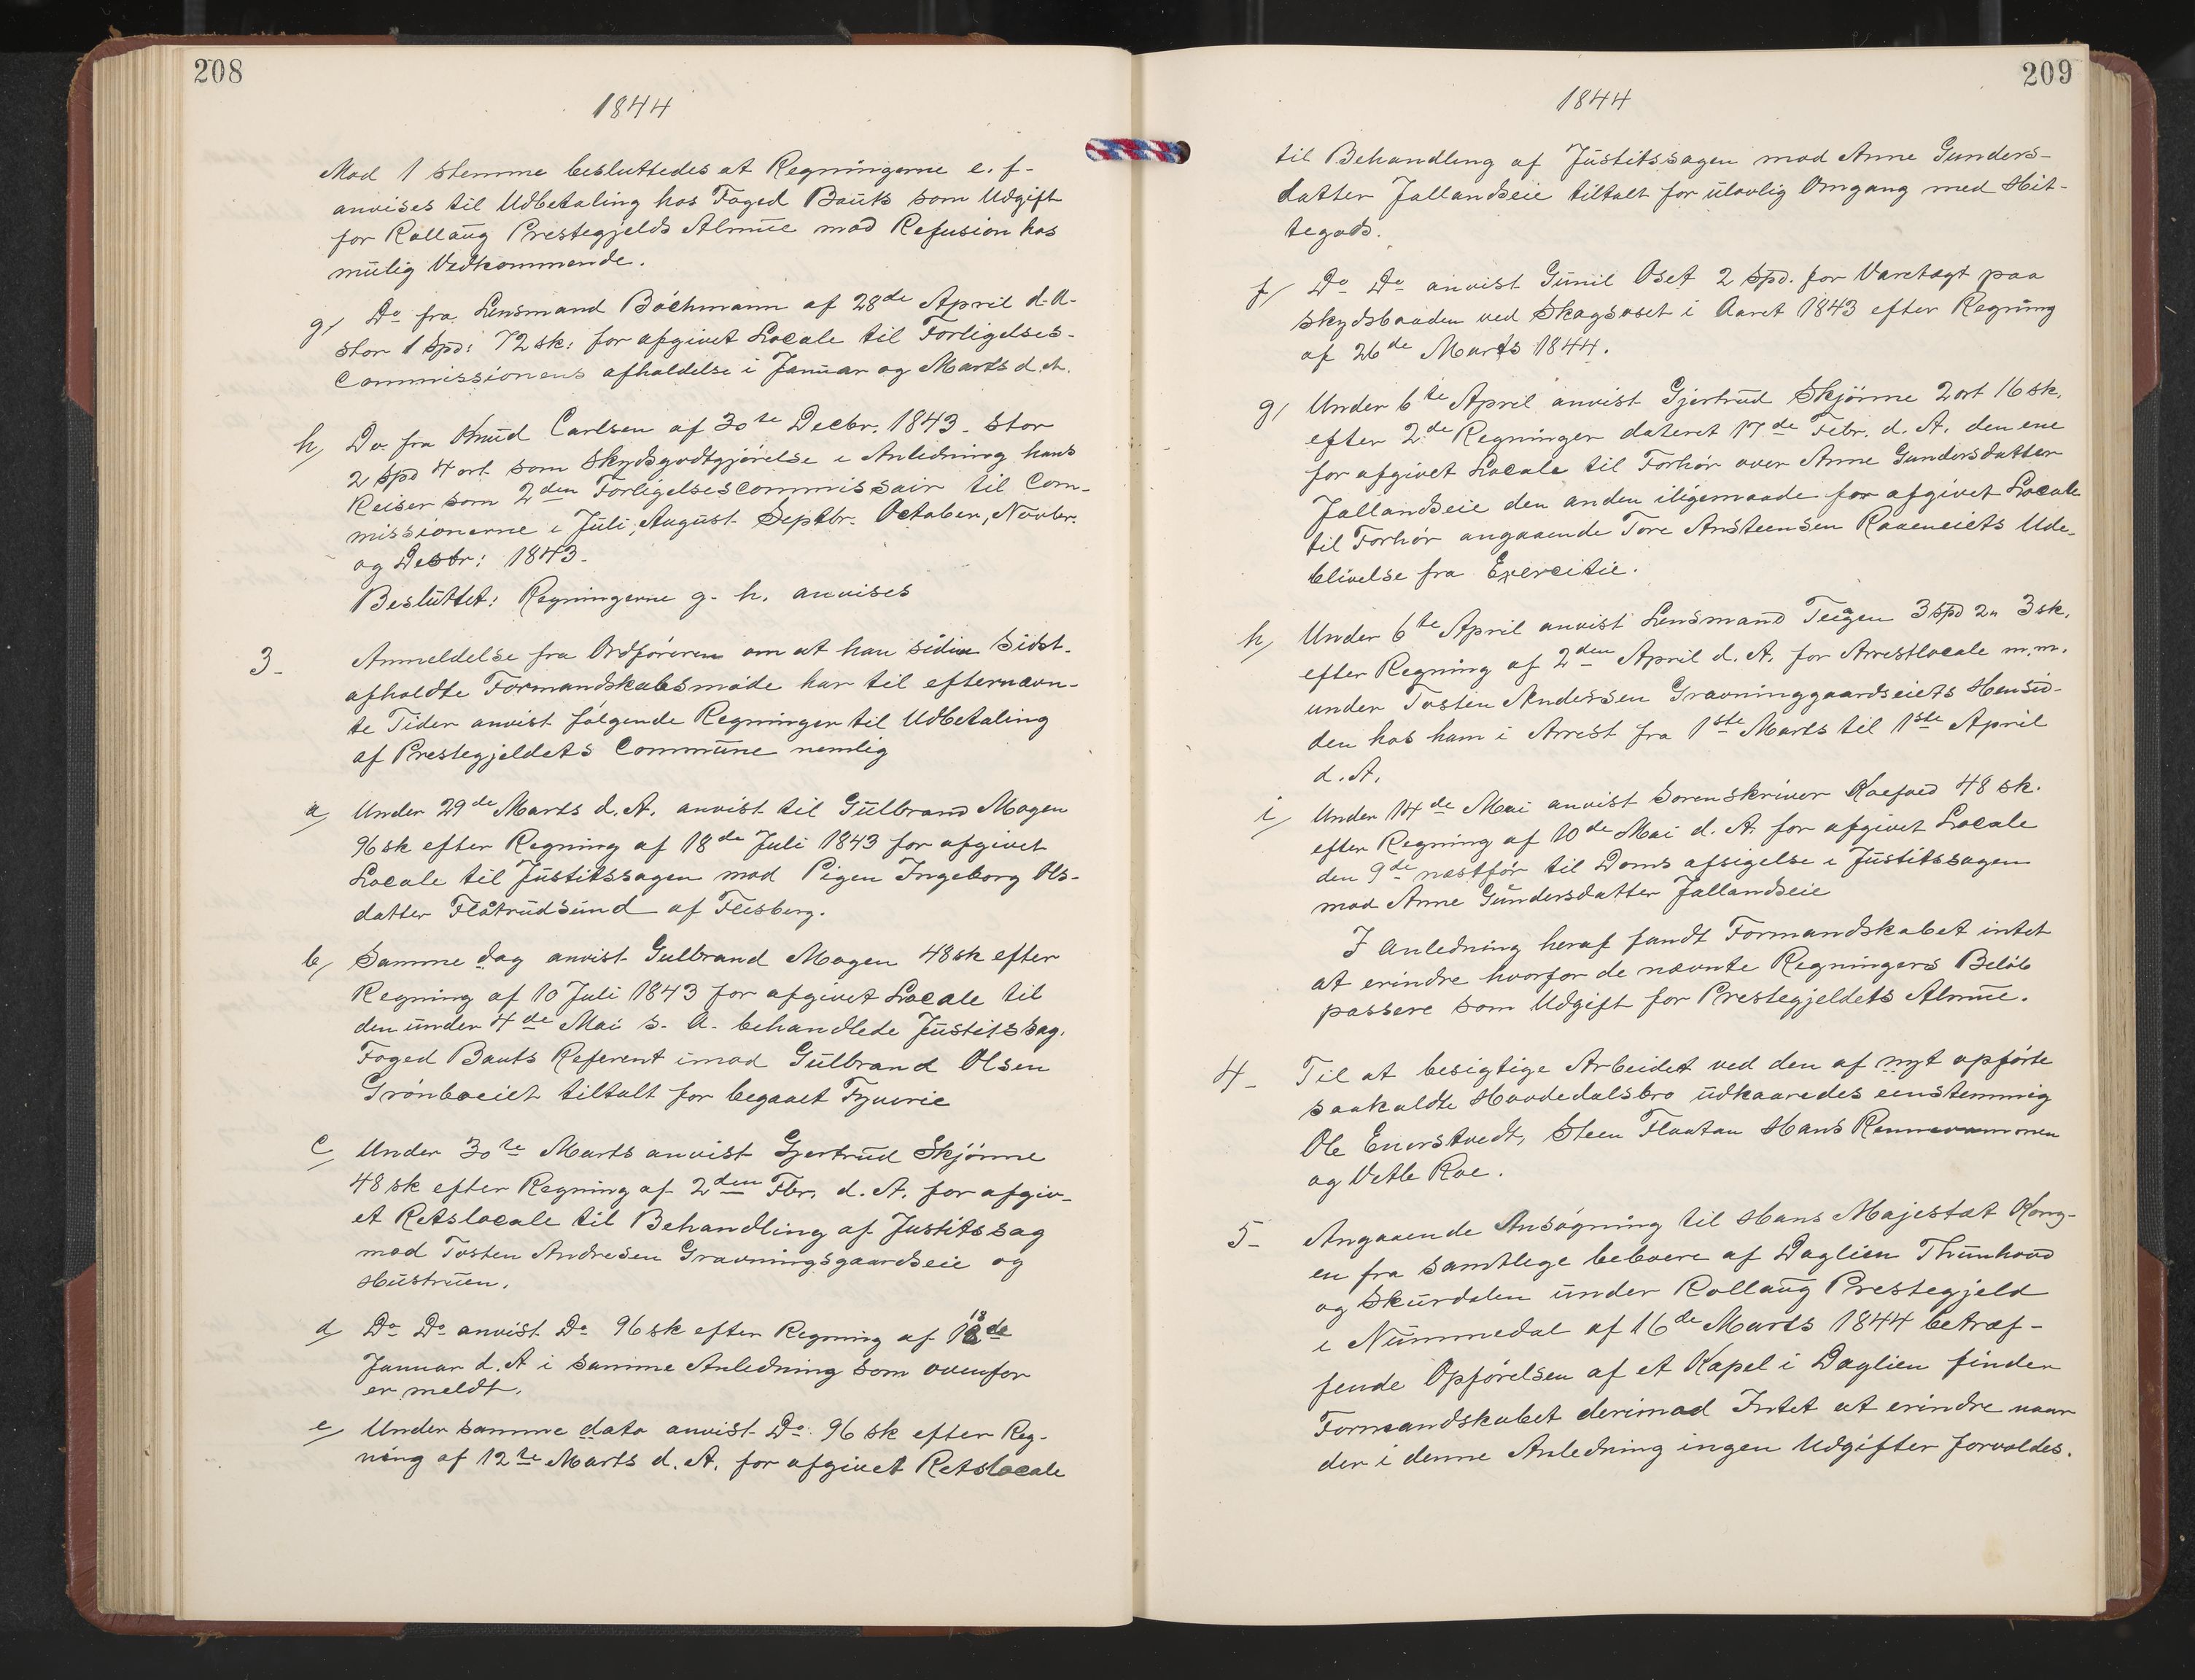 208
1844
Mod 1 Stemme besluttedes at Regningerne e. f-
anvises til Udbetaling hos Foged Bauts som Udgift
for Rollaug Prestegjelds Almue mod Refusion hos
mulig Vedkommende.
g/ Do fra Lensmand Bóchmann af 28de April d. A.
stor 1 Spd: 72 sk: for afgivet Locale til Forligelses-
Commissionens afholdelse i Januar og Marts d. A.
h/ Do. fra Knud Carlsen af 30te Decbr. 1843. stor
2 spd 4 ort som Skydsgodtgjørelse i Anledning hans
Reiser som 2den Forligelsescommissair til Com-
missionerne i Juli, August Septbr. October, Novbr.
og Desbr: 1843.
Besluttet: Regningerne g. h. anvises
3- Anmeldelse fra Ordføreren om at han siden Sidst-
afholdte Formandskabsmøde har til efternævn-
te Tider anvist følgende Regninger til Udbetaling
af Prestegjeldets Commune nemlig
a/ Under 29de Marts d. A. anvist til Gulbrand Mogen
96 sk efter Regning af 18de Juli 1843 for afgivet
Locale til Justitssagen mod Pigen Ingeborg Ols-
datter Flåtrudsund af Flesberg.
b/ Samme dag anvist Gulbrand Mogen 48 sk efter
Regning af 10 Juli 1843 for afgivet Locale til
den under 4de Mai s. A. behandlede Justitssag.
Foged Bauts Referent imod Gulbrand Olsen
Grónboeiet tiltalt for begaaet Tyverie
c/ Under 30te Marts anvist Gjertrud Skjónne
48 sk efter Regning af 2den Fbr. d. A. for afgiv-
et Retslocale til Behandling af Justitssag
mod Tosten Andresen Gravningsgaardseie og
Hustruen.
d/ Do Do anvist Do 96 sk efter Regning af 18de
Januar d. A i samme Anledning som ovenfor
er meldt.
e/ Under samme dato anvist Do 96 sk efter Reg-
ning af 12te Marts d. A. for afgivet Retslocale
209
1844
til Behandling af Justitssagen mod Anne Gunders-
datter Jallandseie tiltalt for ulovlig Omgang med Hit-
tegods.
f/ Do Do anvist Gunil Oset 2 Spd. for Varetægt paa
Skydsbaaden ved Skogsoset i Aaret 1843 efter Regning
af 26de Marts 1844.
g/ Under 6te April anvist Gjertrud Skjónne 2 ort 16 sk.
efter 2de Regninger dateret 17de Febr. d. A. den ene
for afgivet Locale til Forhór over Anne Gundersdatter
Jallandseie den anden iligemaade for afgivet Locale
til Forhór angaaende Tore Ansteensen Raaeneiets Ude-
blivelse fra Exercitie.
h/ Under 6te April anvist Lensmand Teigen 3 Spd 2" 3 sk.
efter Regning af 2den April d. A. for Arrestlocale m. m.
under Tosten Andersen Gravninggaardseiets Hensid-
den hos ham i Arrest fra 1ste Marts til 1ste April
d. A.
i/ Under 14de Mai anvist Sorenskriver Koefoed 48 sk.
efter Regning af 10de Mai d. A. for afgivet Locale
den 9de næstfór til Doms afsigelse i Justitssagen
mod Anne Gundersdatter Jallandseie
I Anledning heraf fandt Formandskabet intet
at erindre hvorfor de nævnte Regningers Belób
passere som Udgift for Prestegjeldets Almue.
4- Til at besigtige Arbeidet ved den af nyt opfórte
saakaldte Hovdedalsbro udkaaredes eenstemmig
Ole Enerstvedt, Steen Flaatan Hans
og Vetle Roe.
5- Angaaende Ansógning til Hans Majestæt Kong-
en fra samtlege beboere af Daglien Thunhovd
og Skurdalen under Rollaug Prestegjeld
i Nummedal af 16de Marts 1844 betræf-
fende Opfórelsen af et Kapel i Daglien finder
Formandskabet derimod Intet at erindre naar
der i denne Anledning ingen Udgifter forvoldes.